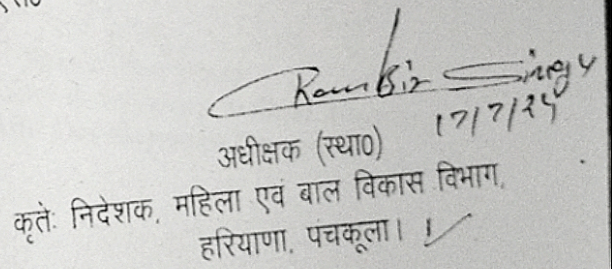 Ram Bir Singh
17/7/24
अधीक्षक (स्था0)
कृतेः निदेशक, महिला एवं बाल विकास विभाग,
हरियाणा, पंचकूला।